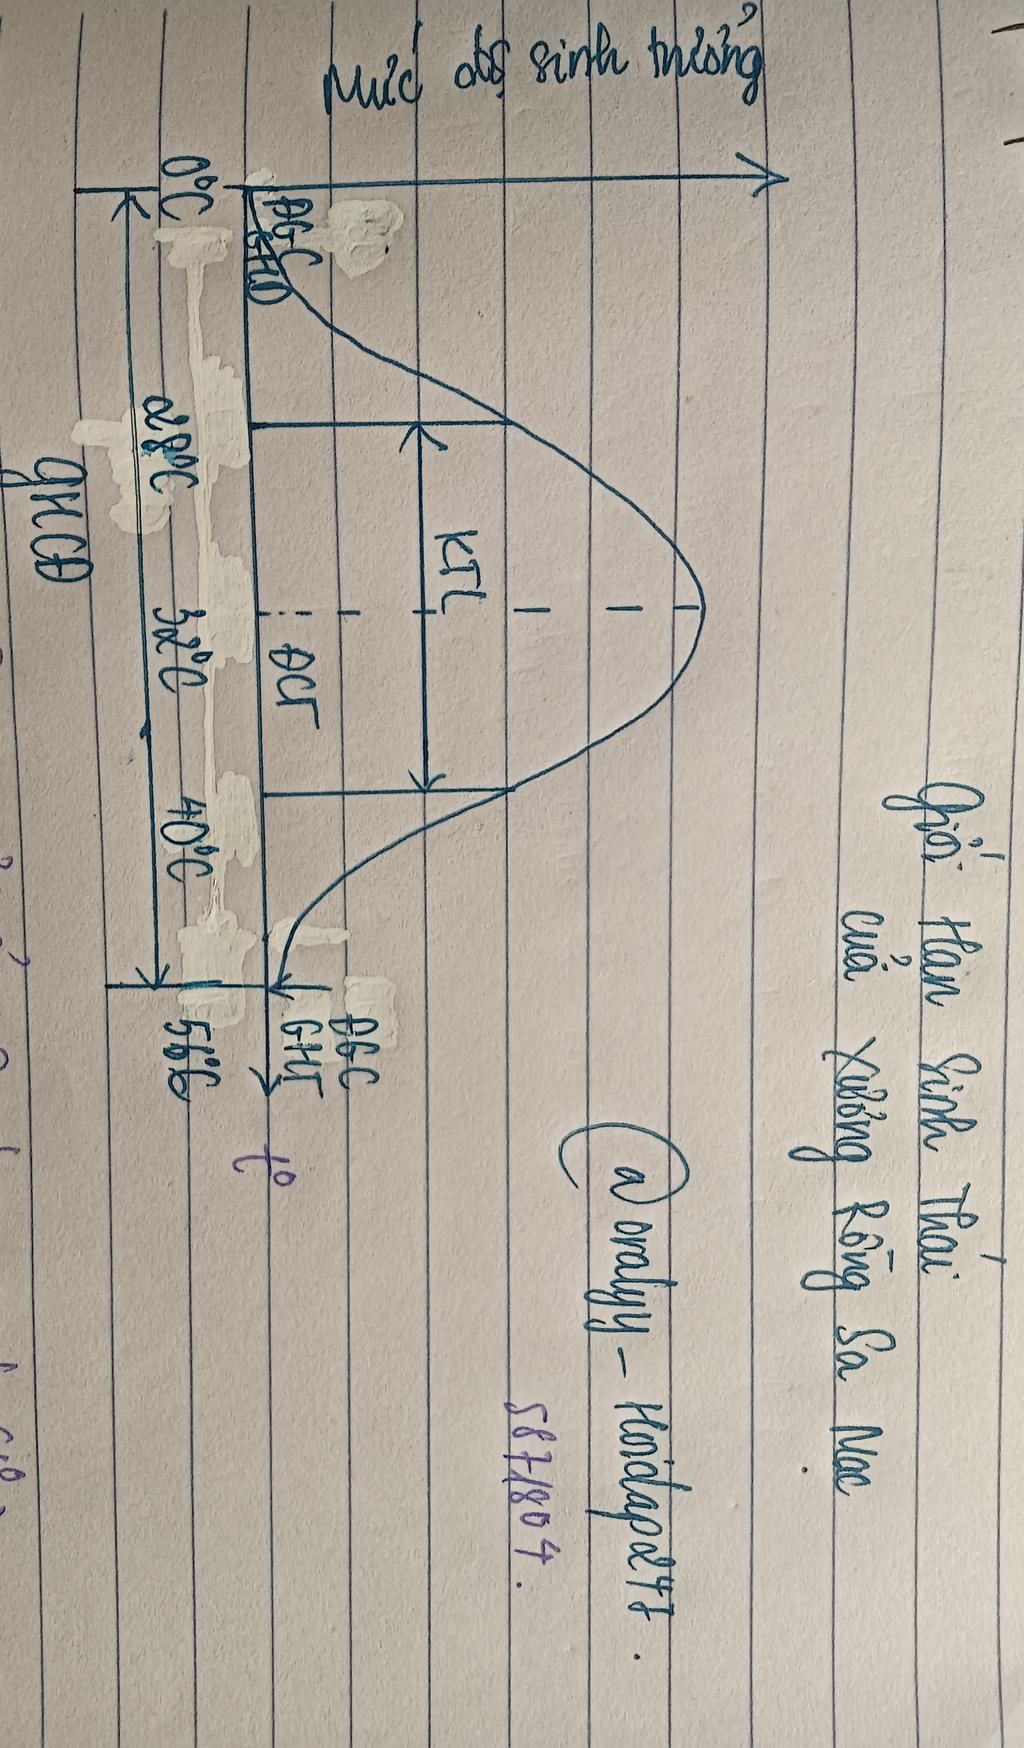 Giới Hạn Sinh Thái
của Xương Rồng Sa Mạc.
@oralyy - Hoidap247.
5871804.
Mức độ sinh trưởng
KTL
ĐGC
GHD
ĐCT
ĐGC
GHT
0°C
28°C
32°C
40°C
56°C
t°
GHCĐ